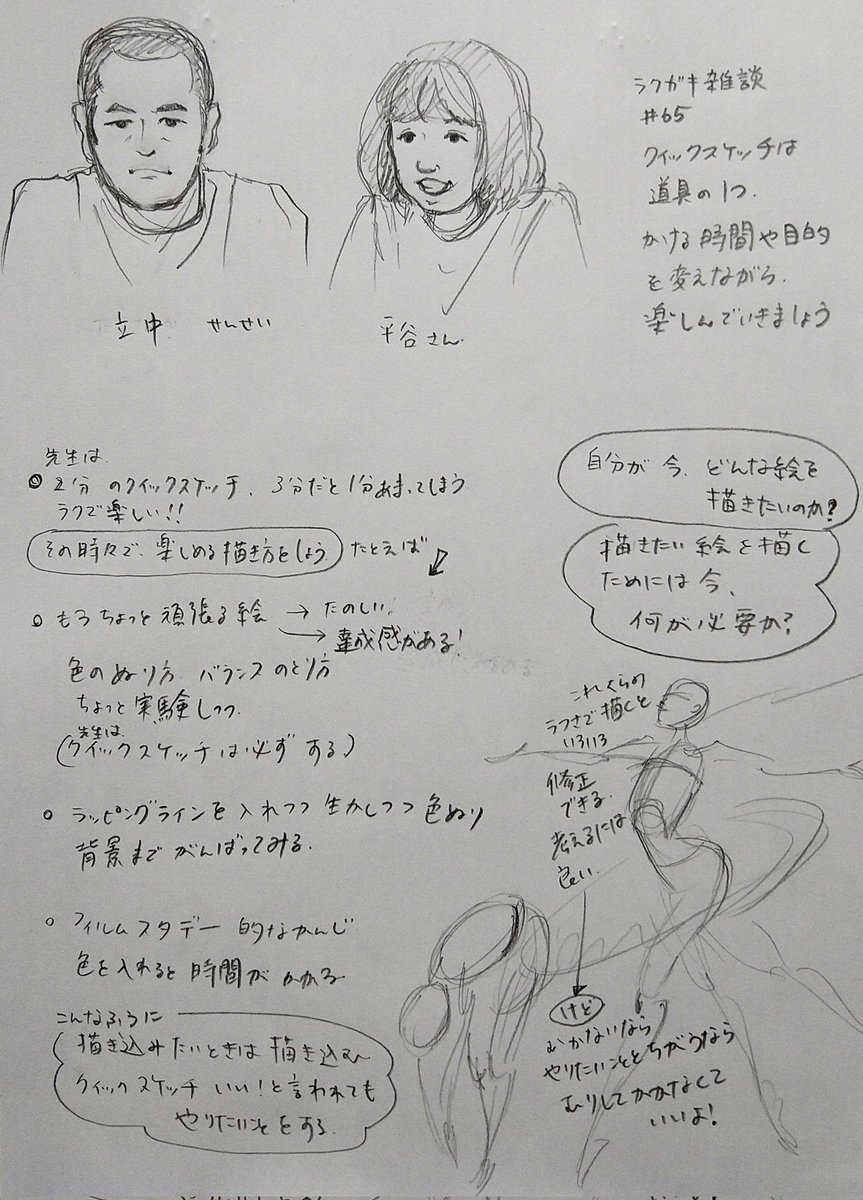 ラクガキ雑談
#65
クイックスケッチは
道具の1つ.
かける時間や目的
を変えながら.
楽しんでいきましょう
立中 せんせい
平谷さん
先生は
2分のクイックスケッチ、3分だと1分あまってしまう
ラクで楽しい!!
その時々で、楽しめる描き方をしよう たとえば
もうちょっと頑張る絵 → たのしい!
→ 達成感がある!
色のぬり方、バランスのとり方
ちょっと実験しつつ
先生は
(クイックスケッチは必ずする)
ラッピングラインを入れつつ生かしつつ色ぬり
背景までがんばってみる.
フィルムスタデー的なかんじ
色を入れると時間がかかる
こんなふうに
描き込みたいときは描き込む
クイックスケッチいい!と言われても
やりたいことをする.
自分が今、どんな絵を
描きたいのか?
描きたい絵を描く
ためには今、
何が必要か?
これくらの
ラフさで描くと
いろいろ
修正
できる.
考えるには
良い.
けど
むかないなら
やりたいこととちがうなら
むりしてかかなくて
いいよ!